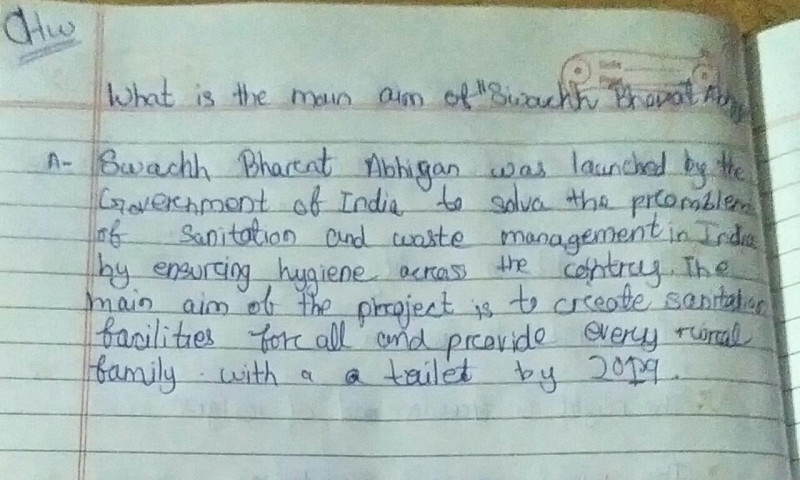 CHW
What is the main aim of "Swachh Bharat
A- Swachh Bharat Abhigan was launched by the
Government of India to solva the promblem
of sanitation and waste management in India
by ensuring hygiene across the contry. The
main aim of the project is to create sanitation
facilities for all and provide every rural
family with a a toilet by 2019.